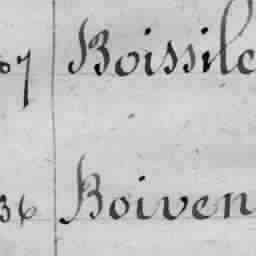 07 Boissile
36 Boiven